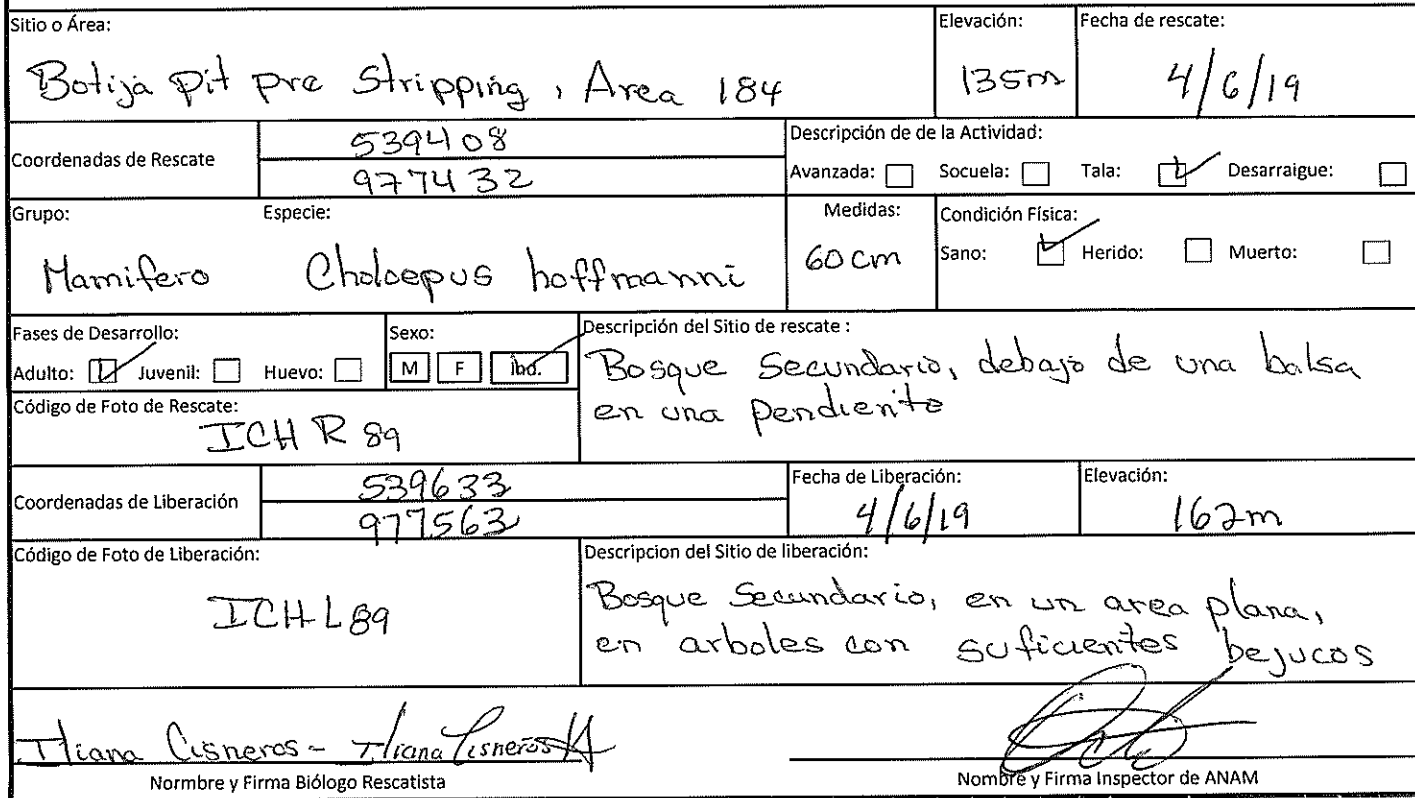 Sitio o Área:
Botija pit pre stripping, Area 184
Elevación:
135m
Fecha de rescate:
4/6/19
Coordenadas de Rescate
539408
977432
Descripción de de la Actividad:
Avanzada: Socuela: Tala: Desarraigue:
Grupo: Especie:
Mamifero Choloepus hoffmanni
Medidas:
60 cm
Condición Física:
Sano: Herido: Muerto:
Fases de Desarrollo:
Adulto: Juvenil: Huevo:
Sexo:
M F Ind.
Descripción del Sitio de rescate :
Bosque Secundario, debajo de una balsa
en una pendiente
Código de Foto de Rescate:
ICH R 89
Coordenadas de Liberación
539633
977563
Fecha de Liberación:
4/6/19
Elevación:
162m
Código de Foto de Liberación:
ICH L 89
Descripcion del Sitio de liberación:
Bosque Secundario, en un area plana,
en arboles con suficientes bejucos
Iliana Cisneros - Iliana Cisneros
Normbre y Firma Biólogo Rescatista
Nombre y Firma Inspector de ANAM